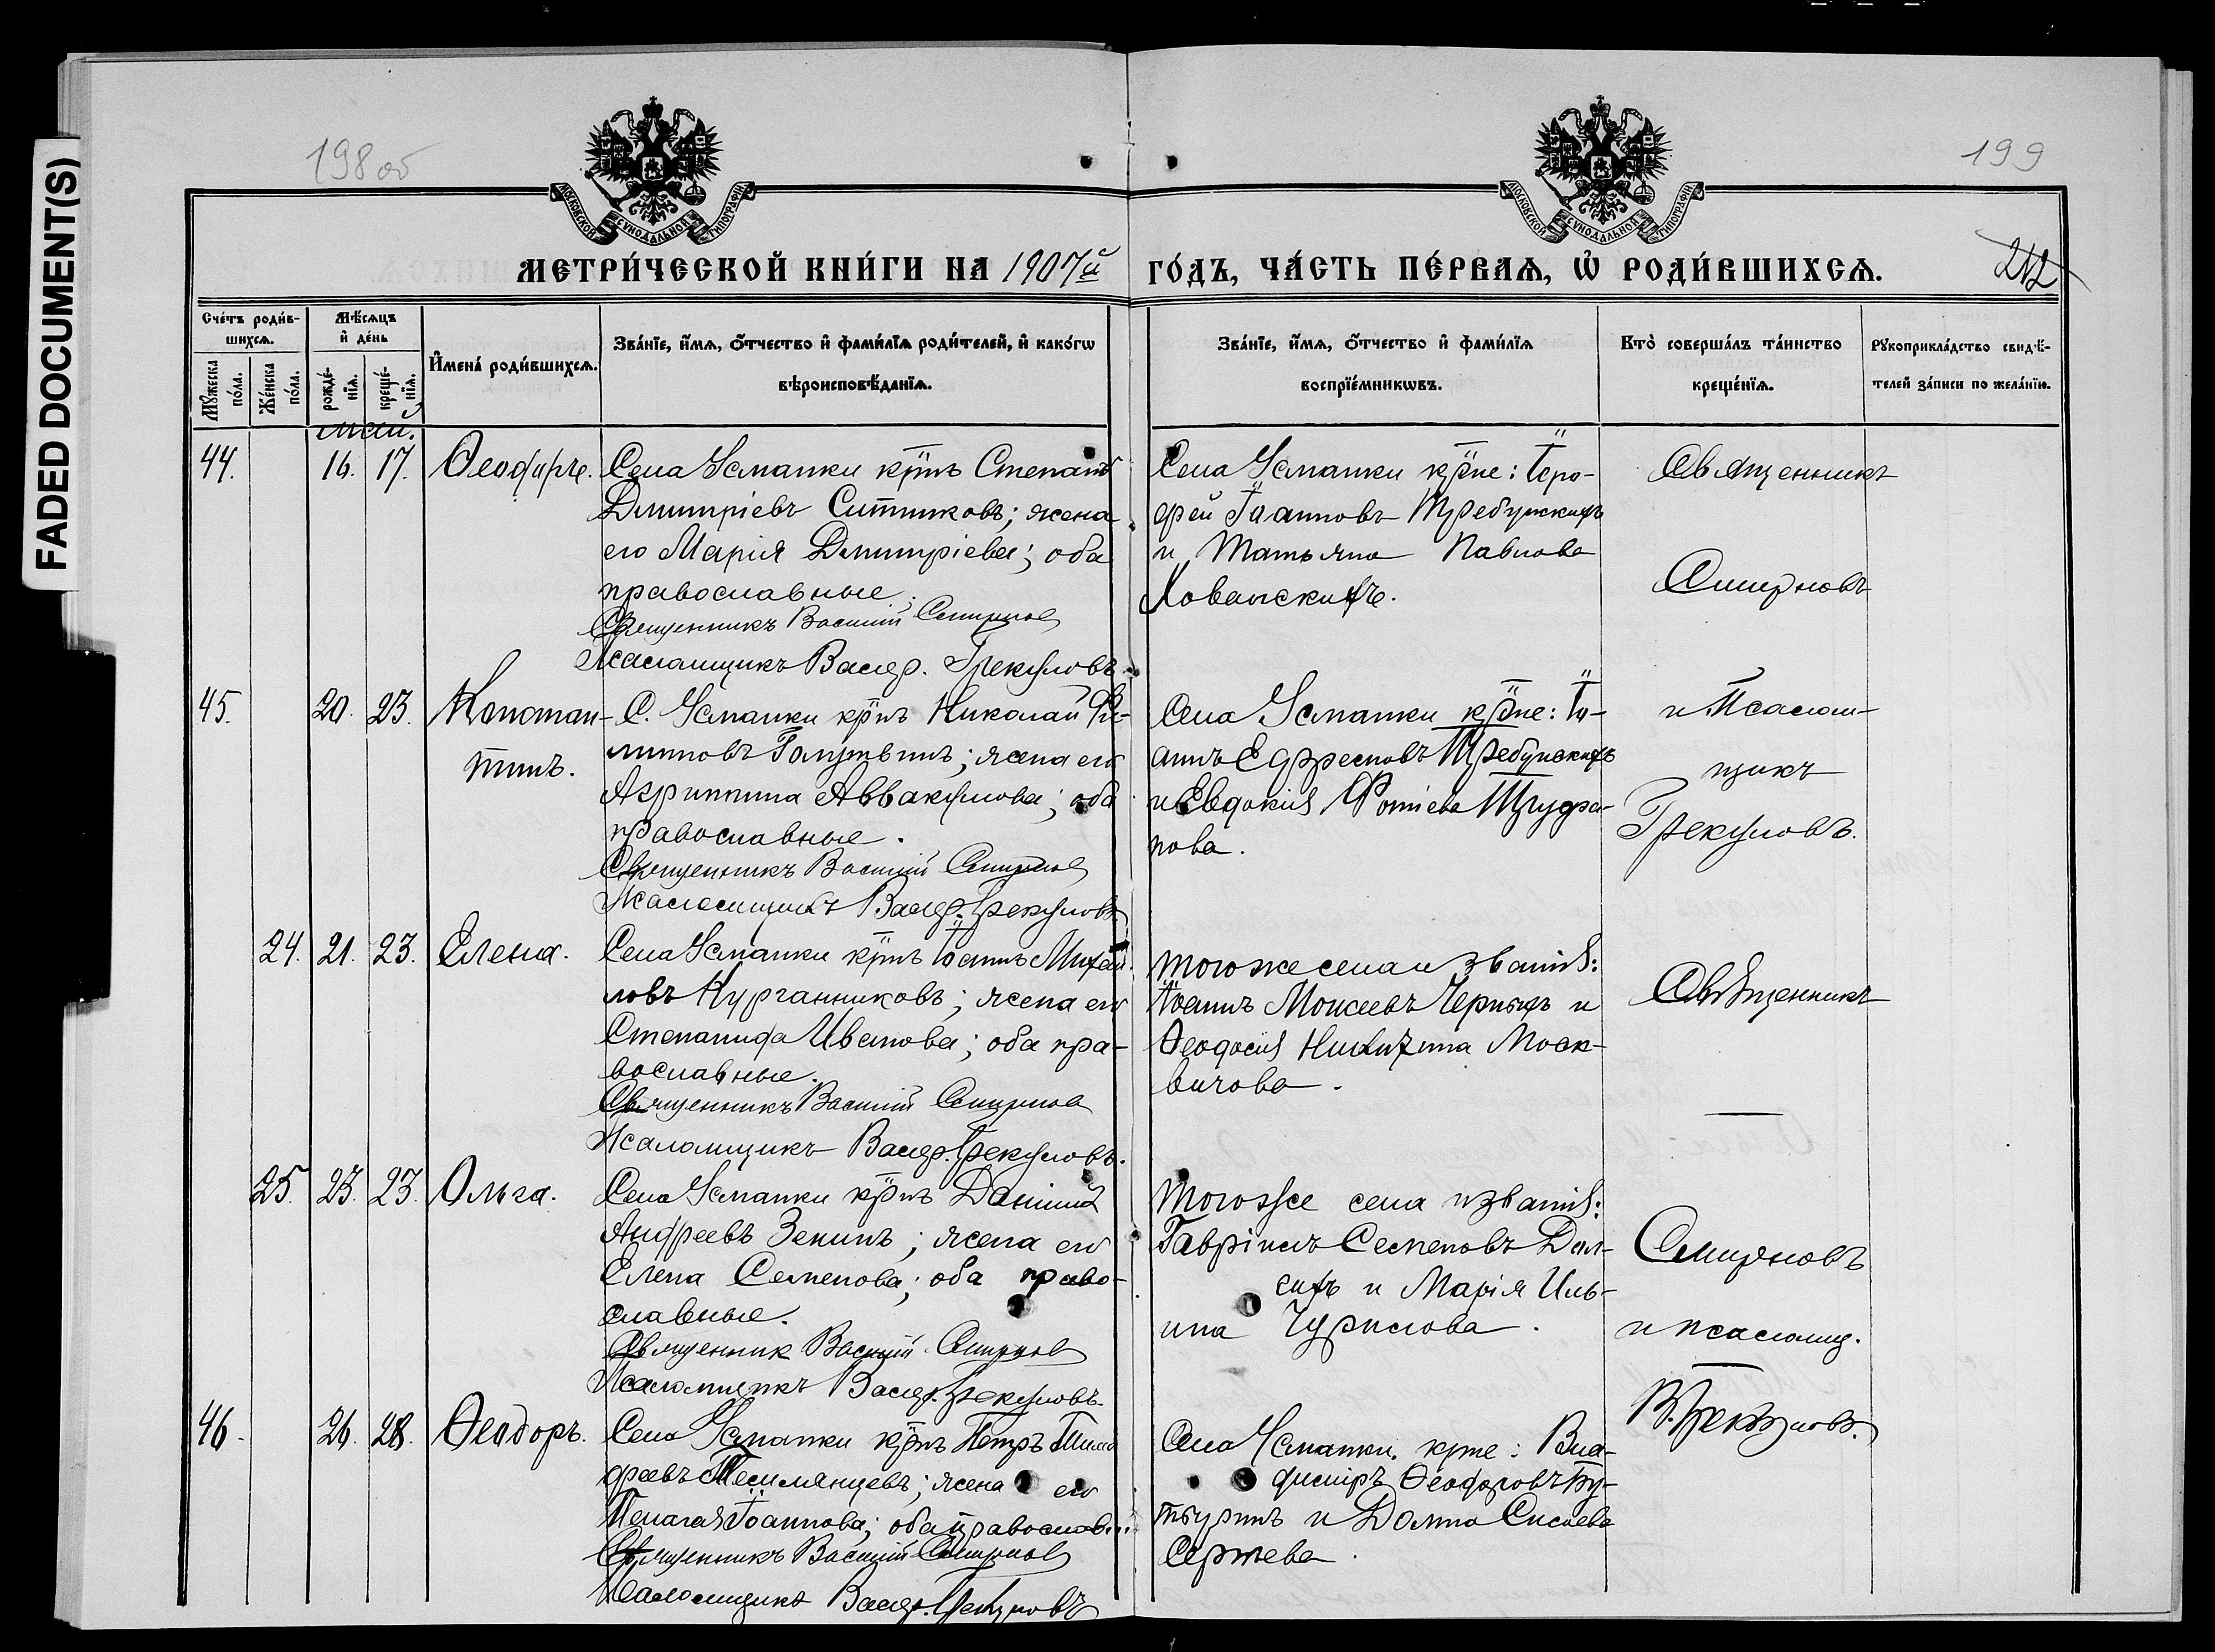 FADED DOCUMENT(S)
198 об
199
МОСКОВСКОЙ СУНОДАЛЬНОЙ ТИПОГРАФІИ
МОСКОВСКОЙ СУНОДАЛЬНОЙ ТИПОГРАФІИ
МЕТРИ́ЧЕСКОЙ КНИ́ГИ НА 1907й ГО́ДЪ, ЧА́СТЬ ПЕ́РВАѦ, Ѡ҆ РОДИ́ВШИХСѦ.
212
Сче́тъ роди́в-
шихсѧ.
Мꙋжеска
по́ла.
Же́нска
по́ла.
Мѣ́сѧцъ
и҆ де́нь
рожде́-
нїѧ.
креще́-
нїѧ.
И҆мена̀ роди́вшихсѧ.
Зва́нїе, и҆́мѧ, ѻ҆́тчество и҆ фами́лїѧ роди́телей, и҆ како́гѡ
вѣроисповѣ́данїѧ.
Зва́нїе, и҆́мѧ, ѻ҆́тчество и҆ фами́лїѧ
воспрїе́мникѡвъ.
Кто̀ соверша́лъ та́инство
креще́нїѧ.
Рꙋкоприкла́дство свидѣ́-
телей за́писи по жела́нїю.
май.
44. 16. 17. Ѳеодоръ.
Села Усманки крнъ Степанъ
Дмитріевъ Ситниковъ; жена
его Марія Дмитріева; оба
православные.
Священникъ Василій Смирнов
Псаломщикъ Валер. Грекуловъ.
Села Усманки крне: Іеро-
фей Іоанновъ Требунскихъ
и Татьяна Павлова
Хованскихъ.
Священникъ
Смирновъ
45. 20. 23. Констан-
тинъ.
С. Усманки крнъ Николай Фи-
липповъ Голужвинъ; жена его
Агриппина Аввакумова; оба
православные.
Священникъ Василій Смирнов
Псаломщикъ Валер. Грекуловъ
Села Усманки крне: Іо-
аннъ Ефремовъ Требунскихъ
и Евдокія Фотіева Труфа-
нова.
и Псалом-
щикъ
Грекуловъ.
24. 21. 23. Елена.
Села Усманки крнъ Іоаннъ Михай-
ловъ Курганниковъ; жена его
Степанида Иванова; оба пра-
вославные.
Священникъ Василій Смирнов
Псаломщикъ Валер. Грекуловъ.
Того же села и званія:
Іоаннъ Моисеевъ Черныхъ и
Ѳеодосія Никитина Моск-
вичова.
Священникъ
25. 23. 23. Ольга.
Села Усманки крнъ Даніилъ
Андреевъ Зенинъ; жена его
Елена Семенова; оба право-
славные.
Священник Василій Смирнов
Псаломщикъ Валер. Грекуловъ.
Того же села и званія:
Гавріилъ Семеновъ Дол-
сихъ и Марія Иль-
ина Чурилова.
Смирновъ
и псаломщ.
В. Грекуловъ.
46. 26. 28. Ѳеодоръ.
Села Усманки крнъ Петръ Тимо
феевъ его
Пелагія Іоаннова; оба православ.
Священникъ Василій Смирнов
Псаломщикъ Валер. Грекуловъ
Села Усманки, крне: Вла-
димиръ Ѳеодоровъ Бу-
тыринъ и Домна Сысоева
Сергѣева.